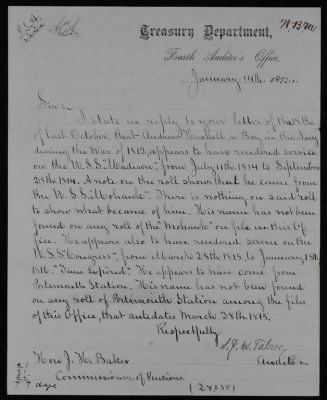 Treasury Department,
Fourth Auditor's Office,
January 14th. 1873.
Sir:
I state in reply to your letter of the
of last October, that Andrew a Boy in the Navy
during the War of 1812, appears to have rendered service
on the U.S.S. "Madison", from July 11th. 1814, to September
28th. 1814. A note on the roll shows that he came from
the U.S.S. "Mohawk". There is nothing on said roll
to show what became of him. His name has not been
found on any roll of the "Mohawk" on file in this Of-
fice. He appears also to have rendered service on the
U.S.S. "Congress", from March 28th 1815, to January 18th
1816. "Time Expired". He appears to have come from
Portsmouth Station. His name has not been found
on any roll of Portsmouth Station among the files
of this Office, that antedates March 28th. 1815.
Respectfully
Auditor.
Hon J. H. Baker
Commissioner of Pensions.